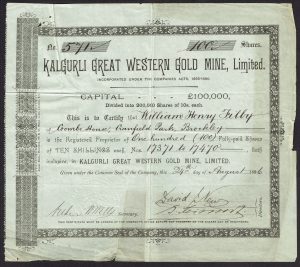 No. 571. 100. Shares.
KALGURLI GREAT WESTERN GOLD MINE, Limited.
INCORPORATED UNDER THE COMPANIES ACTS, 1862-1890.
CAPITAL £100,000,
Divided into 200,000 Shares of 10s. each.
This is to Certify that William Henry Filby
of Coombe House, Park, Brockley
is the Registered Proprietor of One hundred (100) Fully-paid Shares
of TEN SHILLINGS each, Nos. 17371 to 17470 both
inclusive, in KALGURLI GREAT WESTERN GOLD MINE, LIMITED.
Given under the Common Seal of the Company, this 24th day of August 1896
David
Secretary.
Directors.